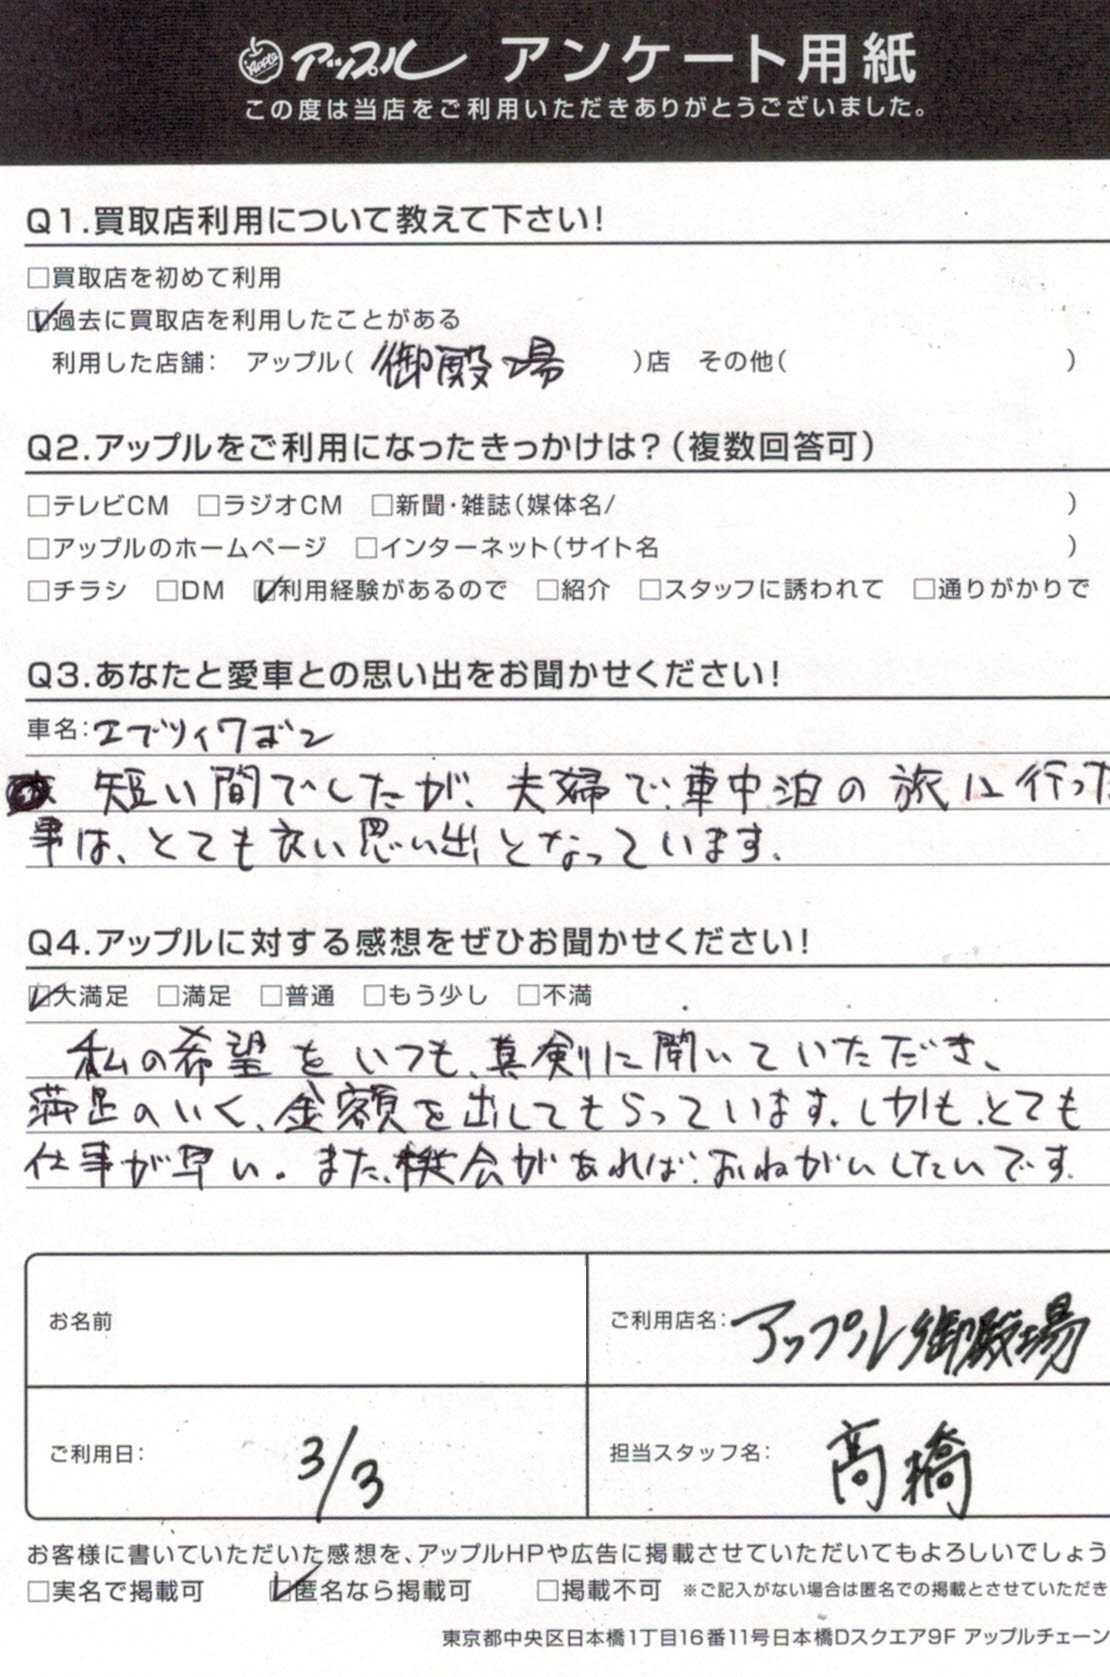 Apple アップル アンケート用紙
この度は当店をご利用いただきありがとうございました。
Q1.買取店利用について教えて下さい!
□買取店を初めて利用
☑過去に買取店を利用したことがある
利用した店舗: アップル( 御殿場 )店 その他( )
Q2.アップルをご利用になったきっかけは?(複数回答可)
□テレビCM □ラジオCM □新聞・雑誌(媒体名/ )
□アップルのホームページ □インターネット(サイト名 )
□チラシ □DM ☑利用経験があるので □紹介 □スタッフに誘われて □通りがかりで
Q3.あなたと愛車との思い出をお聞かせください!
車名:エブリィワゴン
短い間でしたが、夫婦で車中泊の旅に行った
事は、とても良い思い出となっています。
Q4.アップルに対する感想をぜひお聞かせください!
☑大満足 □満足 □普通 □もう少し □不満
私の希望をいつも、真剣に聞いていただき、
満足のいく、金額を出してもらっています。しかも、とても
仕事が早い。また、機会があれば、おねがいしたいです。
お名前
ご利用店名:アップル御殿場
ご利用日: 3/3
担当スタッフ名: 髙橋
お客様に書いていただいた感想を、アップルHPや広告に掲載させていただいてもよろしいでしょう
□実名で掲載可 ☑匿名なら掲載可 □掲載不可 ※ご記入がない場合は匿名での掲載とさせていただき
東京都中央区日本橋1丁目16番11号日本橋Dスクエア9F アップルチェーン